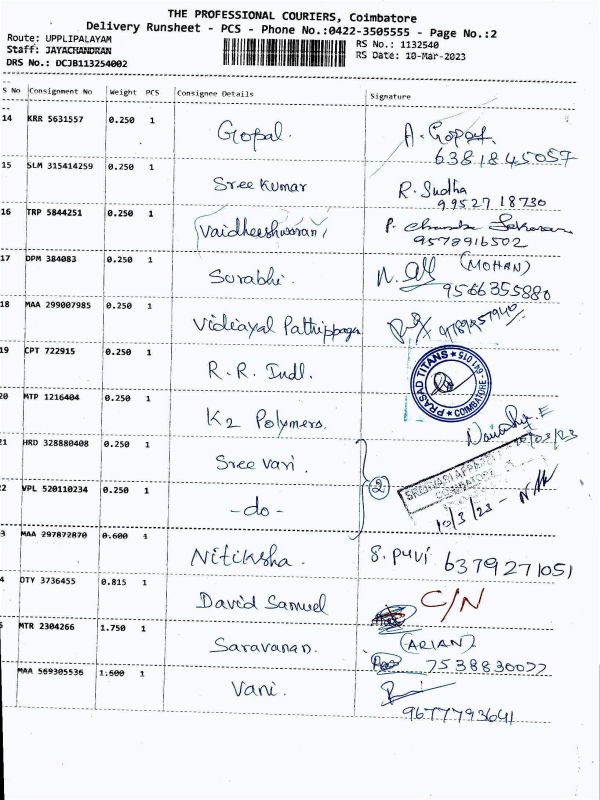 THE PROFESSIONAL COURIERS, Coimbatore
Delivery Runsheet - PCS - Phone No.:0422-3505555 - Page No.:2
Route: UPPLIPALAYAM
Staff: JAYACHANDRAN
DRS No.: DCJB113254002
RS No.: 1132540
RS Date: 10-Mar-2023
S No Consignment No Weight PCS Consignee Details Signature
14 KRR 5631557 0.250 1 Gopal. A. Gopal
6381845057
15 SLM 315414259 0.250 1 Sree Kumar R. Sudha
99527 18730
16 TRP 5844251 0.250 1 Vaidheeshwaran P.
9578916502
17 DPM 384083 0.250 1 Surabhi. (MOHAN)
9566355880
18 MAA 299007985 0.250 1 Videayal Pathippagam
19 CPT 722915 0.250 1 R.R. Indl. PRASAD TITANS 641 015 COIMBATORE
20 MTP 1216404 0.250 1 K2 Polymers.
10/03/23
21 HRD 328880408 0.250 1 Sree Vari
2 VPL 520110234 0.250 1 -do- 2 10/3/23 -
3 MAA 297872870 0.600 1 Nitiksha. S. puvi 6379271051
4 DTY 3736455 0.815 1 David Samuel C/N
5 MTR 2304266 1.750 1 Saravanan. (ARIAN)
7538830077
MAA 569305536 1.600 1 Vani.
9677793641